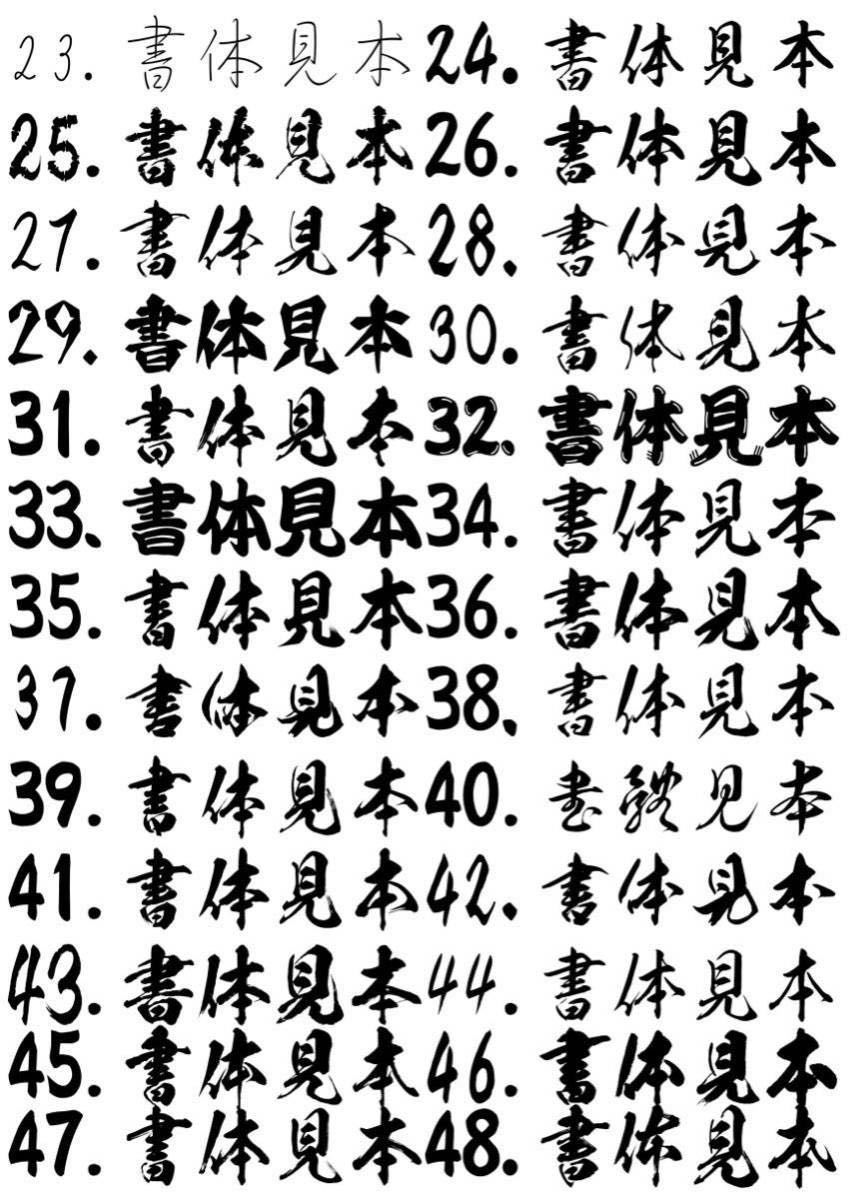 23. 書体見本 24. 書体見本
25. 書体見本 26. 書体見本
27. 書体見本 28. 書体見本
29. 書体見本 30. 書体見本
31. 書体見本 32. 書体見本
33. 書体見本 34. 書体見本
35. 書体見本 36. 書体見本
37. 書体見本 38. 書体見本
39. 書体見本 40. 書軆見本
41. 書体見本 42. 書体見本
43. 書体見本 44. 書体見本
45. 書体見本 46. 書体見本
47. 書体見本 48. 書体見本